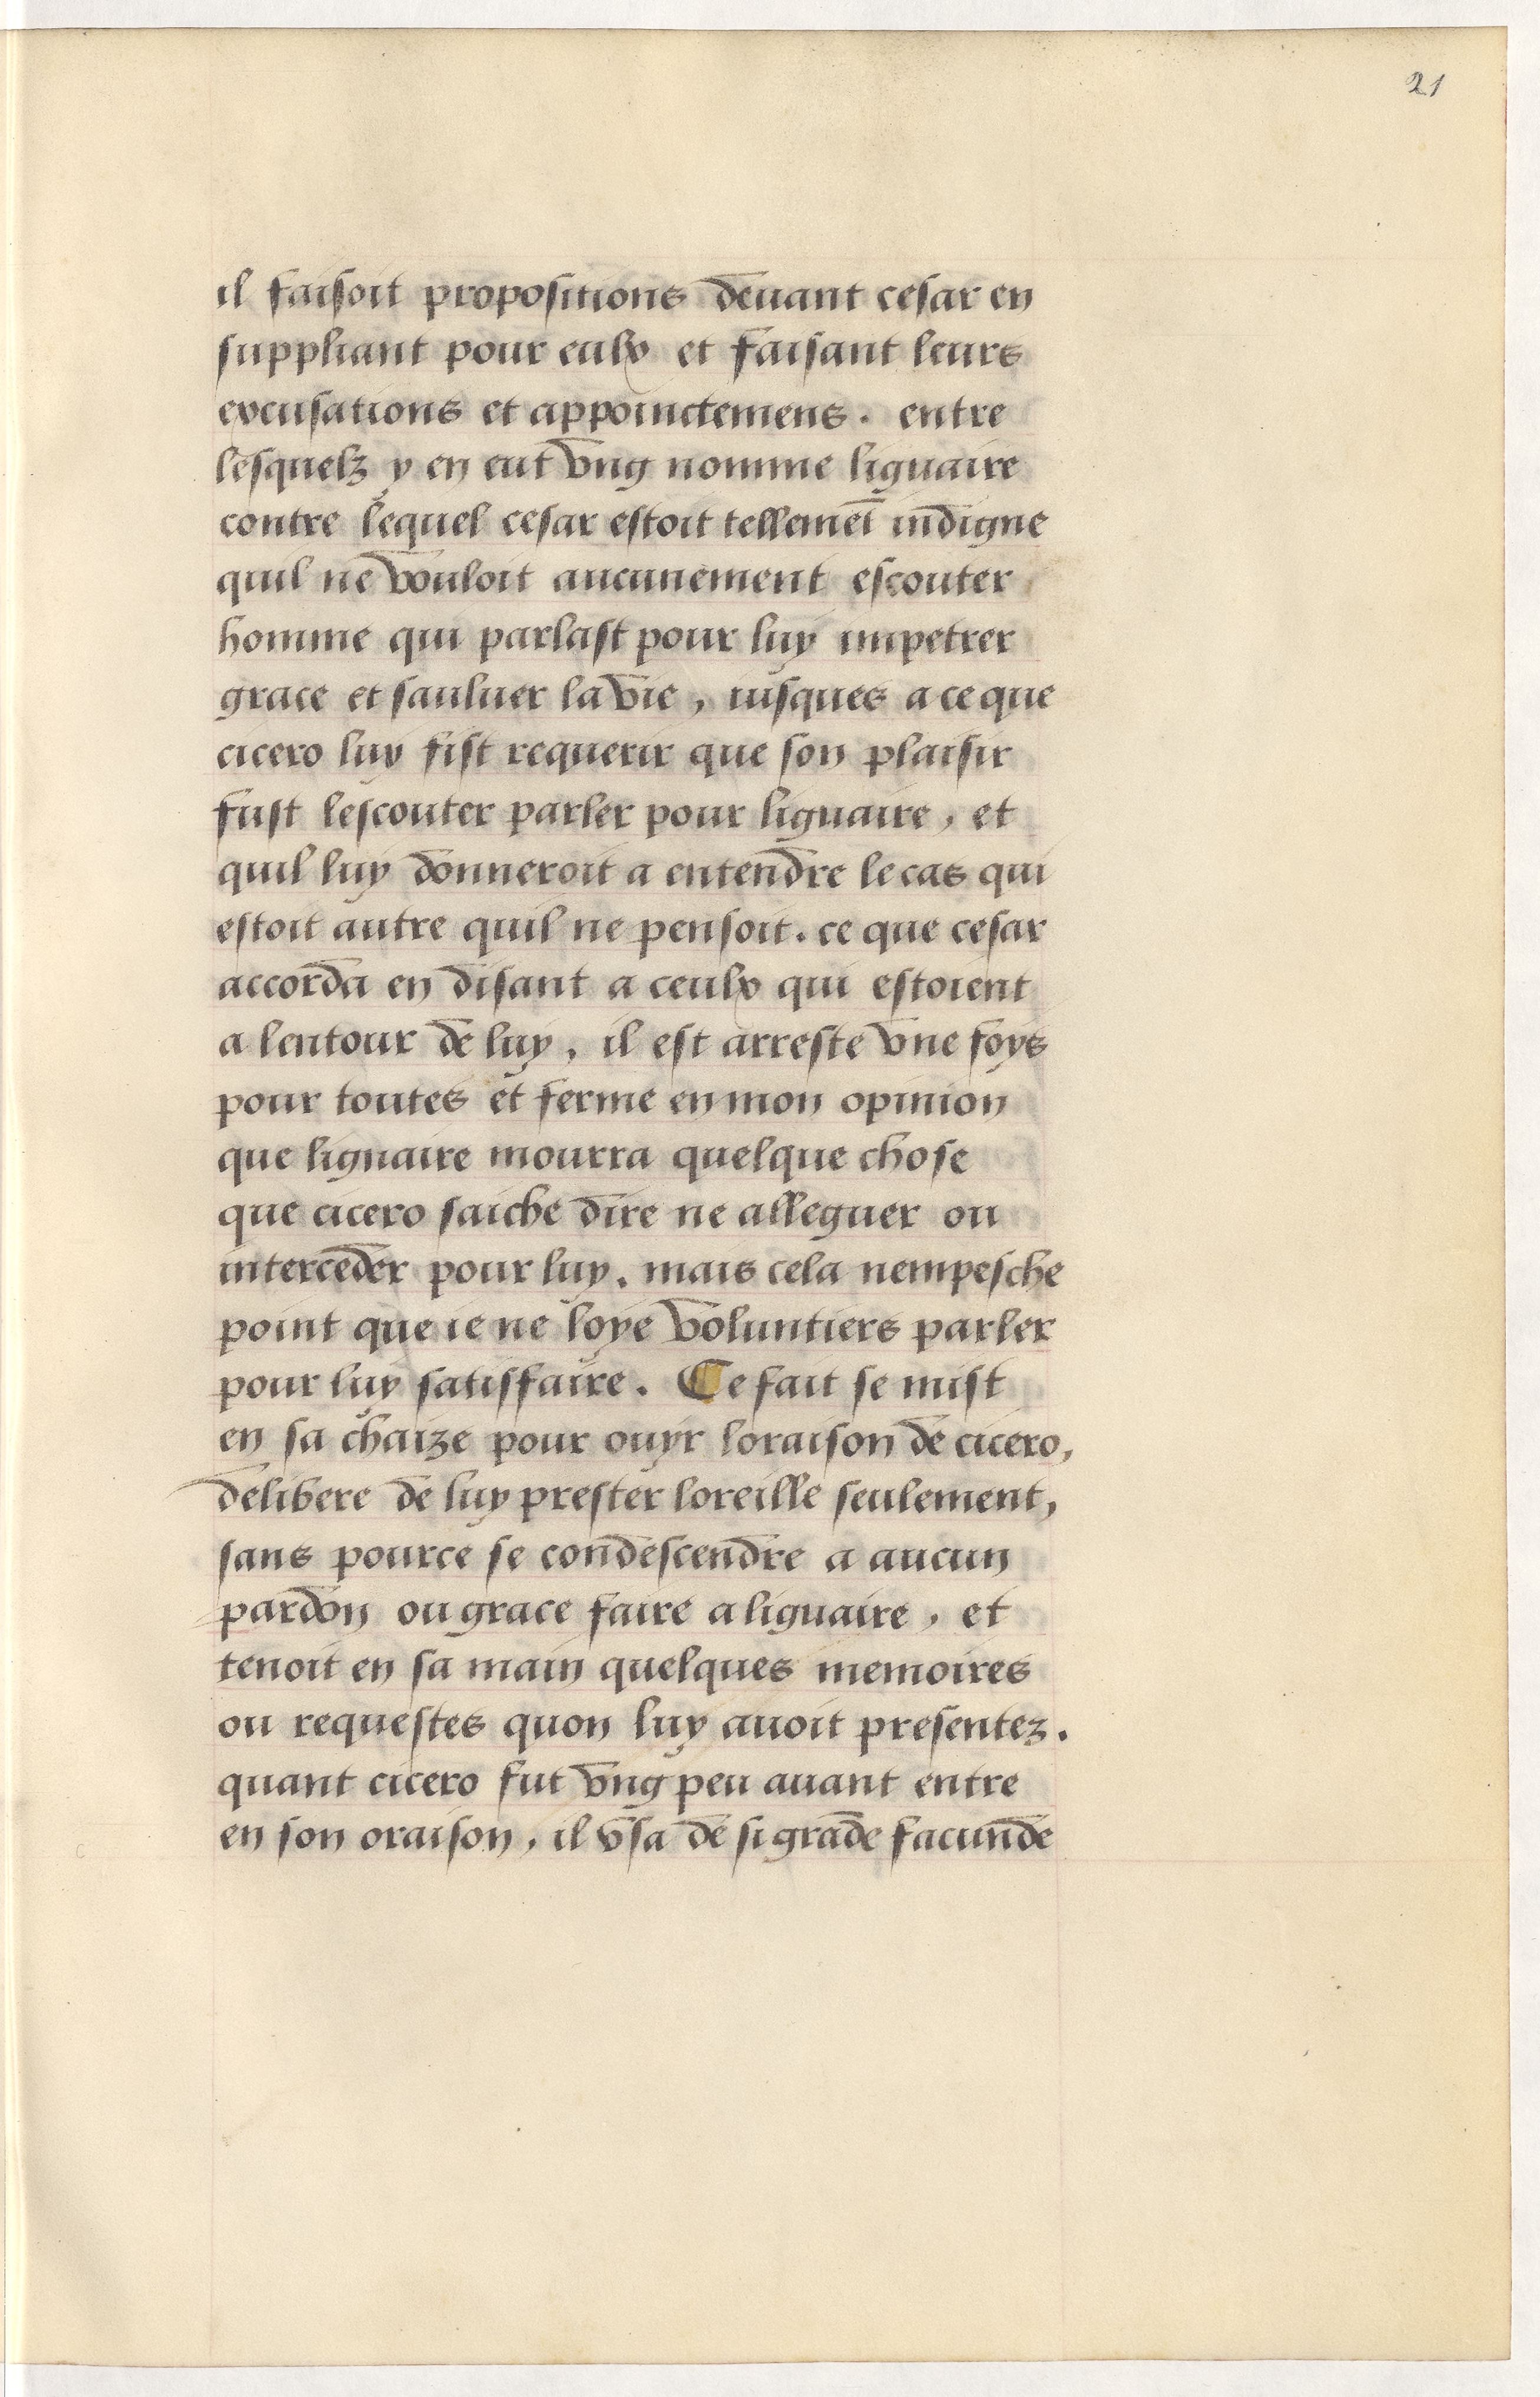 21
il faisoit propositions deuant cesar en
suppliant pour eulx et faisant leurs
excusations et appoinctemens. entre
lesquelz y en eut vng nomme liguaire
contre lequel cesar estoit tellemēt indigne
quil ne vouloit aucunement escouter
homme qui parlast pour luy impetrer
grace et sauluer la vie, iusques a ce que
cicero luy fist requerir que son plaisir
fust lescouter parler pour liguaire, et
quil luy donneroit a entendre le cas qui
estoit autre quil ne pensoit. ce que cesar
accorda en disant a ceulx qui estoient
a lentour de luy, il est arreste vne foys
pour toutes et ferme en mon opinion
que liguaire mourra quelque chose
que cicero saiche dire ne alleguer ou
interceder pour luy. mais cela nempesche
point que ie ne loye voluntiers parler
pour luy satisfaire. Ce fait se mist
en sa chaize pour ouyr loraison de cicero,
delibere de luy prester loreille seulement,
sans pource se condescendre a aucun
pardon ou grace faire a liguaire, et
tenoit en sa main quelques memoires
ou requestes quon luy auoit presentez.
quant cicero fut vng peu auant entre
en son oraison, il vsa de si grade facunde